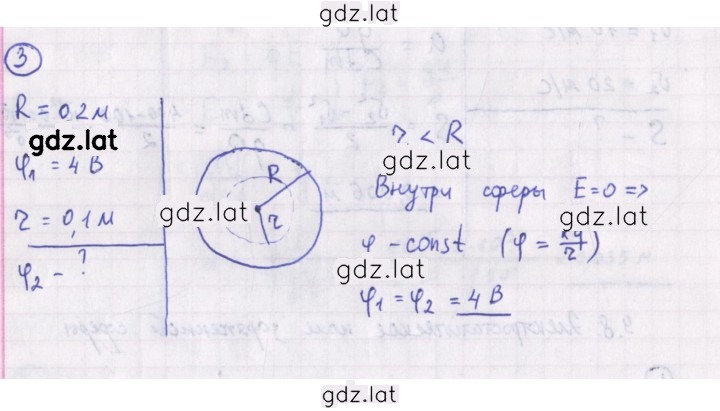 gdz.lat
3
R = 0,2 м
gdz.lat
φ₁ = 4 В
r = 0,1 м
φ₂ - ?
R
r
gdz.lat
r < R
gdz.lat
Внутри сферы E=0 =>
gdz.lat
φ - const (φ = kq/r)
gdz.lat
φ₁ = φ₂ = 4 В
gdz.lat